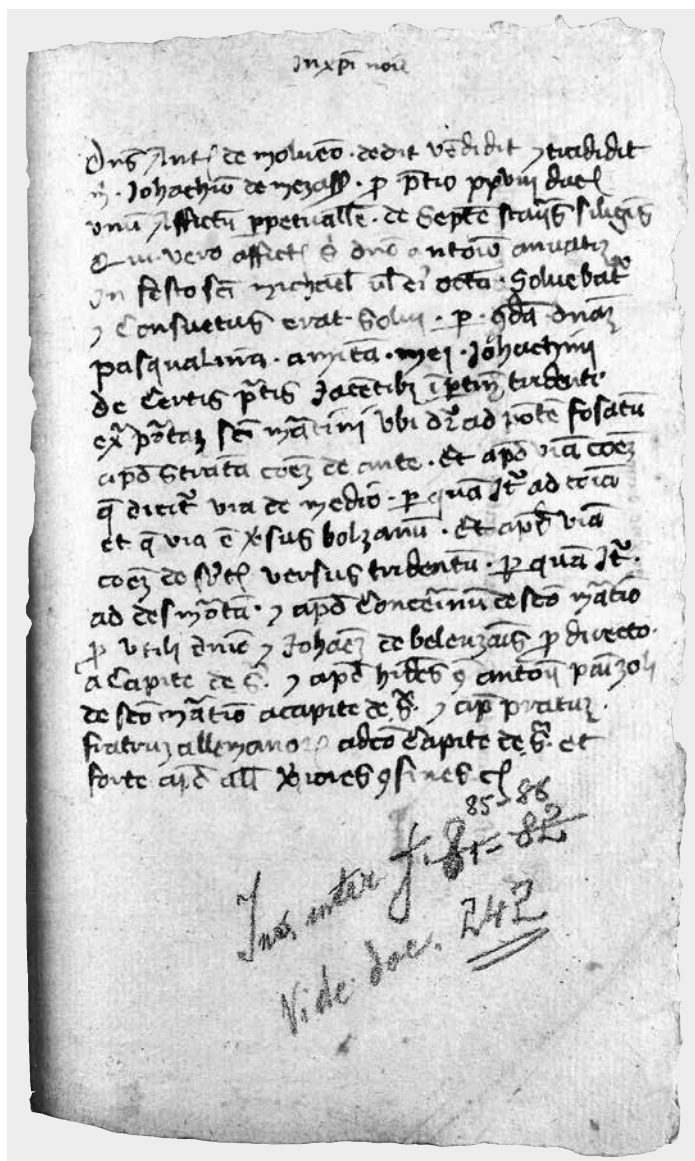 In xpi noie
Dns Ant. de molueno dedit vendidit et tradidit
Iohachio de meza p ptio xxviii duc
unu Affictu ppetualle de Septe staijs siliginis
Qui vero affict dno antoio anuati
In festo sci michael vl ei octa Soluebat
et Consuetus erat Solui p qda dnaz
pasqualina amita mei Iohachini
de Certis ptis Iacetibz tridenti
ex porta sci matini ubi dr ad fosatu
apd strata coez de ante Et apd via coez
q dicit via de medio p qua It ad
et q via e vsus bolzanu Et apd via
coez de versus tridentu p qua It
ad desmota et apd de sco matio
p utili dnio et Iohaez de belenzais p directo
a Capite de s et apd hdes q antoii
de sco matio a capite de s et ap pratuz
fratruz allemanor a Capite de s et
forte apd all viores qfines
85-86
Ins. inter f. 81-82
Vide doc. 242